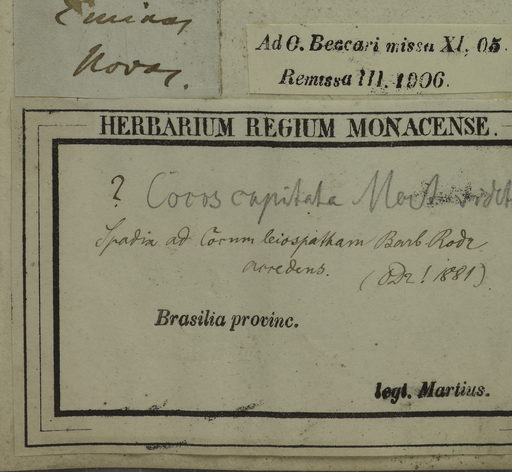 Minas
Novas.
Ad O. Beccari missa XI. 05.
Remissa III. 1906.
HERBARIUM REGIUM MONACENSE.
? Cocos capitata Mart.
Spadix ad Cocum leiospatham Barb Rodr
accedens. (Dr! 1881)
Brasilia provinc.
legt. Martius.